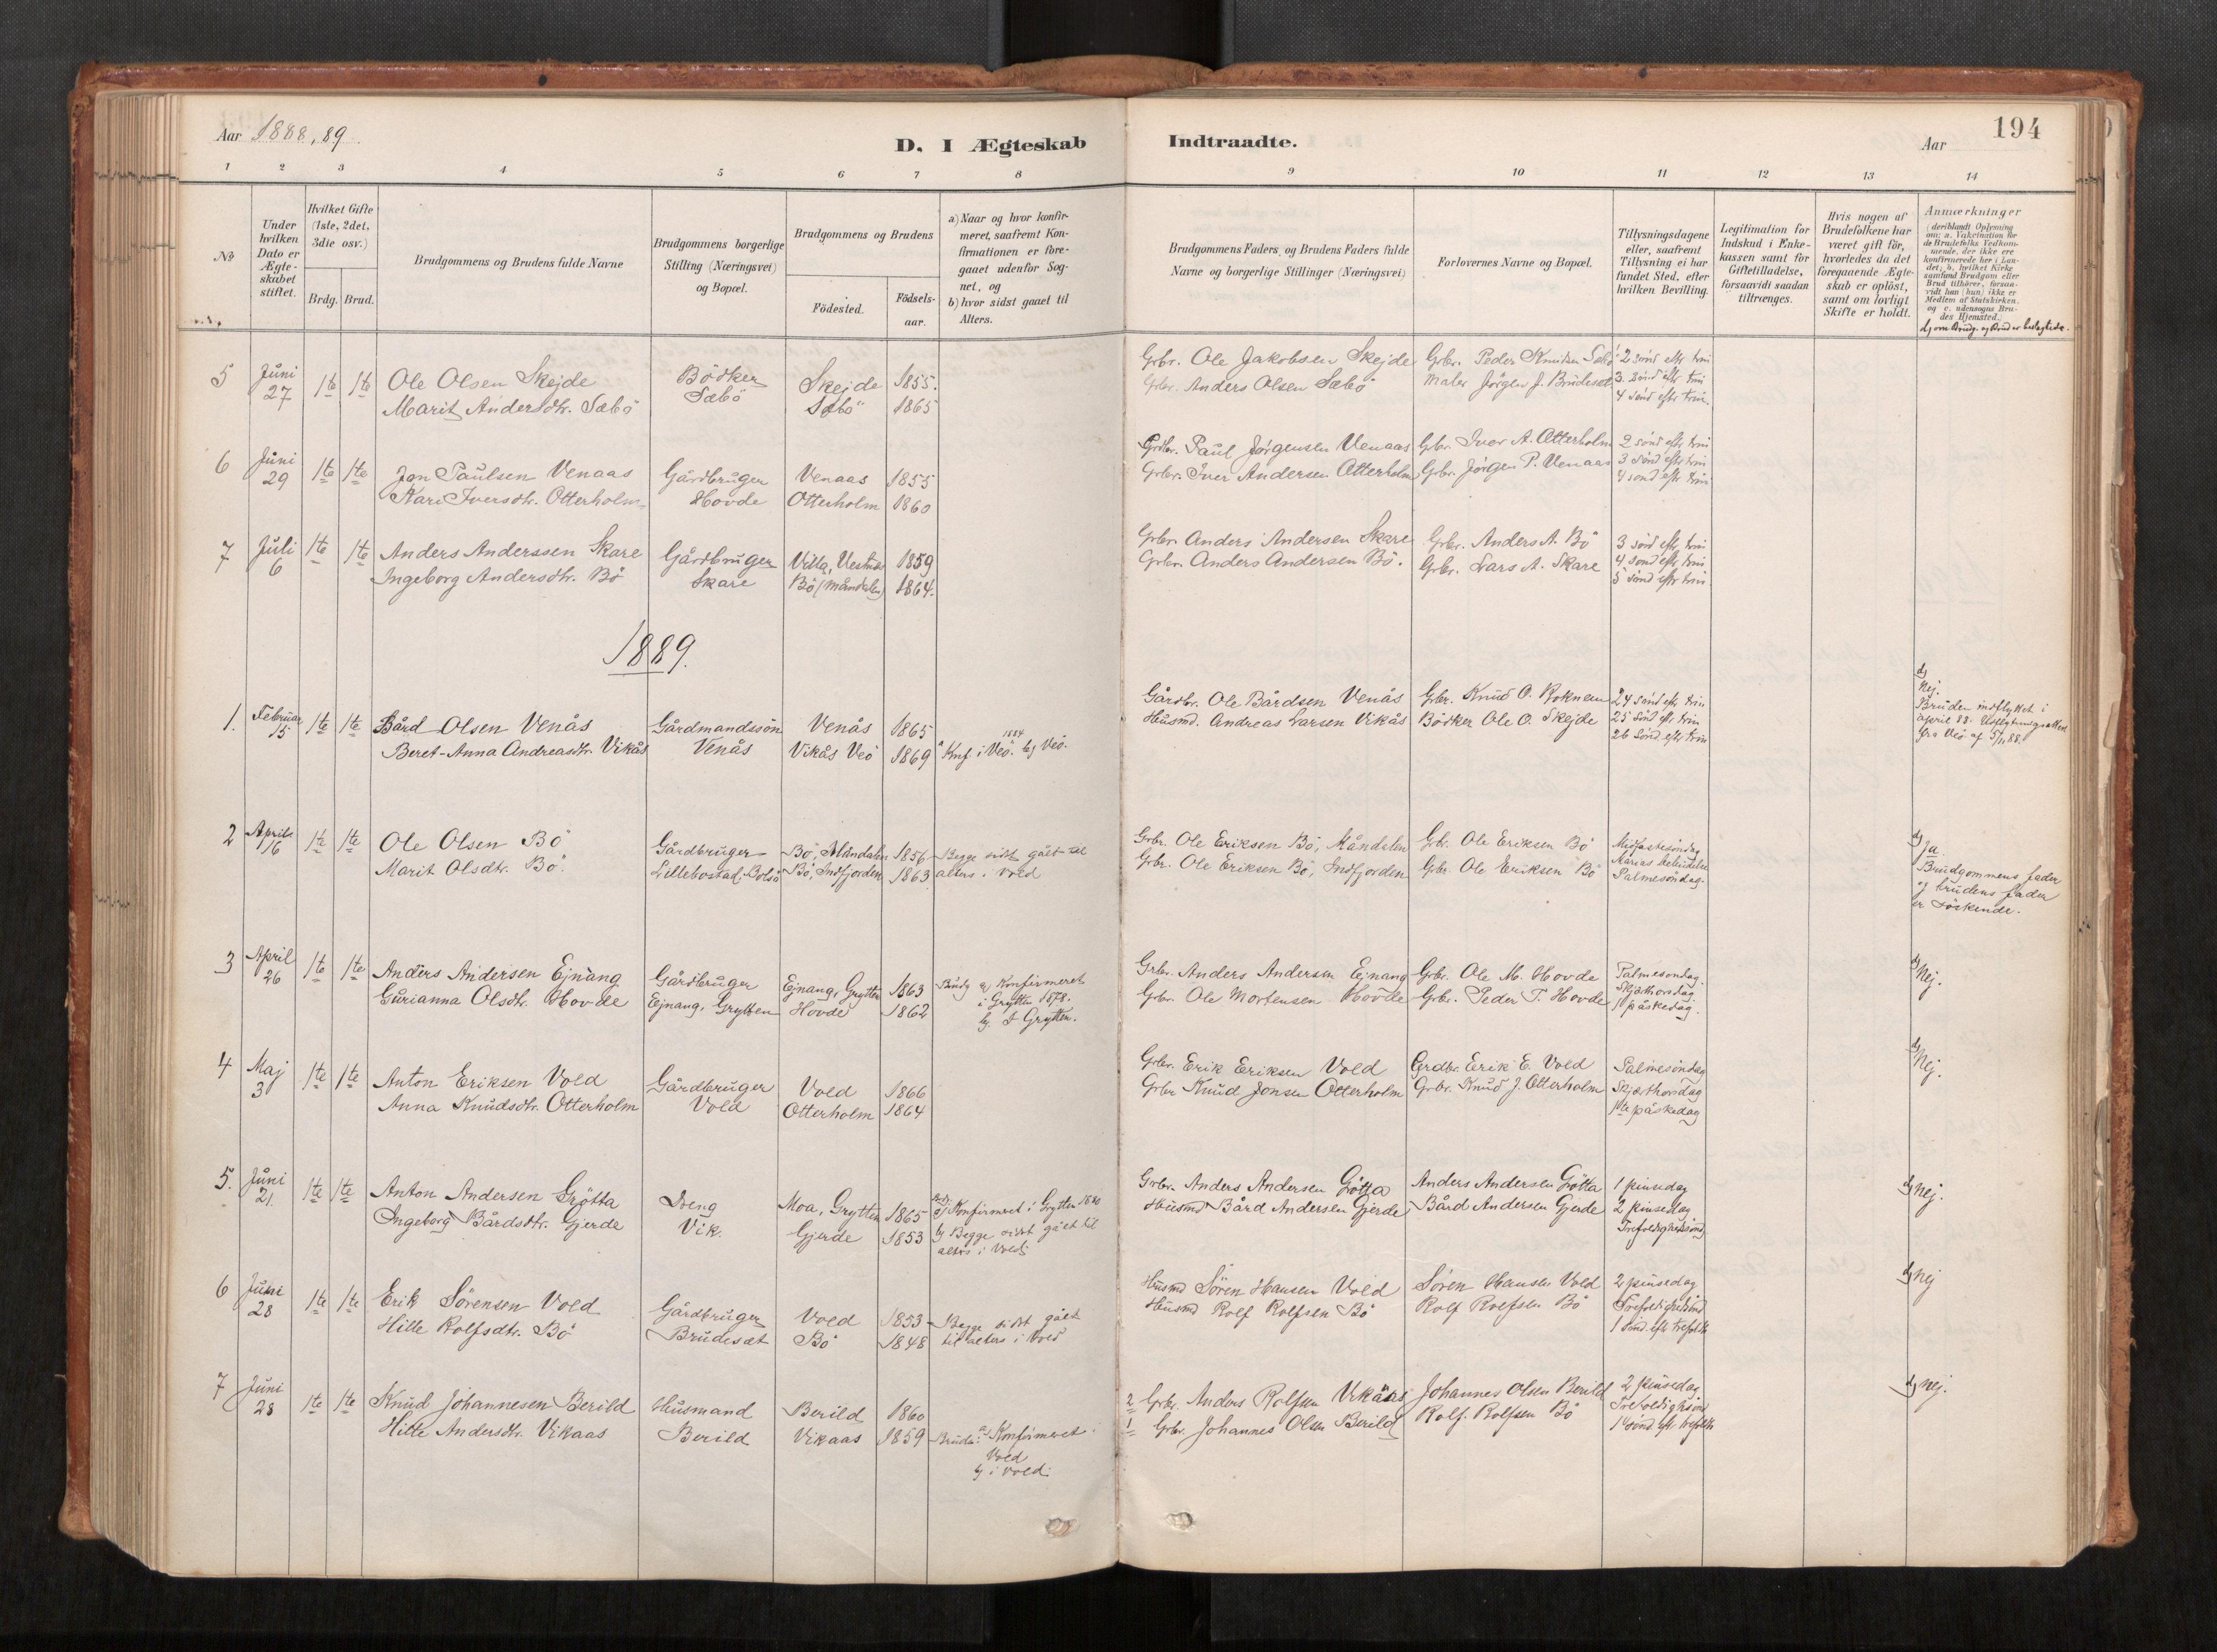 Aar 1888, 89
D. I Ægteskab
Indtraadte.
Aar
194
1 2 3 4 5 6 7 8
9 10 11 12 13 14
No
Under hvilken Dato er Ægteskabet stiftet.
Hvilket Gifte (1ste, 2det, 3die osv.)
Brdg. Brud.
Brudgommens og Brudens fulde Navne
Brudgommens borgerlige Stilling (Næringsvei) og Bopæl.
Brudgommens og Brudens
Födested.
Födsels-aar.
a) Naar og hvor konfirmeret, saafremt Konfirmationen er foregaaet udenfor Sognet, og
b) hvor sidst gaaet til Alters.
Brudgommens Faders og Brudens Faders fulde Navne og borgerlige Stillinger (Næringsvei)
Forlovernes Navne og Bopæl.
Tillysningsdagene eller, saafremt Tillysning ei har fundet Sted, efter hvilken Bevilling.
Legitimation for Indskud i Enkekassen samt for Giftetilladelse, forsaavidt saadan tiltrænges.
Hvis nogen af Brudefolkene har været gift för, hvorledes da det foregaaende Ægteskab er oplöst, samt om lovligt Skifte er holdt.
Anmerkninger
(deriblandt Oplysning om: a. Vakcination for de Brudefolks Vedkommende, der ikke ere konfirmerede her i Landet; b. hvilket Kirkesamfund Brudgom eller Brud tilhörer, forsaavidt han (hun) ikke er Medlem af Statskirken, og c. udensogns Brudes Hjemsted.)
d) om Brudg. og Brud er beslægtede.
5 Juni 27 1te 1te Ole Olsen Skejde Bödker Skejde 1855. Grbr. Ole Jakobsen Skejde Grbr. Peder Knudsen Sæbö 2 sönd efter trin
Marit Andersdtr. Sæbö Sæbö Sæbö 1865 Grbr. Anders Olsen Sæbö Maler Jörgen J. Brudeset 3 sönd eftr trin
4 sönd eftr trin.
6 Juni 29 1te 1te Jon Paulsen Venaas Gårdbruger Venaas 1855 Grdbr. Paul Jørgensen Venaas Grbr. Iver A. Otterholm 2 sönd eftr trin
Kari Iversdtr. Otterholm Hovde Otterholm 1860 Grbr. Iver Andersen Otterholm Grbr. Jörgen P. Venaas 3 sönd eftr trin
4 sönd eftr trin
7 Juli 6 1te 1te Anders Anderssen Skare Gårdbruger Villa, Vestnes 1859 Grbr. Anders Andersen Skare Grbr. Anders A. Bö 3 sönd eftr trin
Ingeborg Andersdtr. Bö Skare Bö (Måndalen) 1864. Grbr. Anders Andersen Bö. Grbr. Lars A. Skare 4 sönd eftr trin
5 sönd eftr trin
1889.
1. Februar 15 1te 1te Bård Olsen Venås Gårdmandssön Venås 1865 Gårdbr. Ole Bårdsen Venås Grbr. Knud O. 24 sönd eftr trin d) Nej.
Beret-Anna Andreasdtr. Vikås Venås Vikås Veö 1869 a Knf. i Veö. 1884 b) Veö. Husmd. Andreas Larsen Vikås Bödker Ole O. Skejde 25 sönd eftr trin Bruden indflyttet i
26 sönd eftr trin april 88. Udflytningsattest
fra Veö af 5/4 88.
2 April 16 1te 1te Ole Olsen Bö Gårdbruger Bö, Måndalen 1856 Begge sidst gået til Grbr. Ole Eriksen Bö, Måndalen Grbr. Ole Eriksen Bö Midfastesöndag d) Ja.
Marit Olsdtr. Bö. Lillebostad, Bolsö Bö, Indfjorden 1863 alters i Vold Grbr. Ole Eriksen Bö, Indfjorden Grbr. Ole Eriksen Bö Marias bebudelse Brudgommens fader
Palmesöndag. og brudens fader
er söskende.
3 April 26 1te 1te Anders Andersen Ejnang Gårdbruger Ejnang, Grytten 1863 Brudg a) Konfirmeret Grbr. Anders Andersen Ejnang Grbr. Ole M. Hovde Palmesöndag. d) Nej.
Gurianna Olsdtr. Hovde Ejnang, Grytten Hovde 1862 i Grytten 1878. Grbr. Ole Mortensen Hovde Grbr. Peder T. Hovde Skjærthorsdag
b) I Grytten. 1 påskedag.
4 Maj 3 1te 1te Anton Eriksen Vold Gårdbruger Vold 1866 Grbr. Erik Eriksen Vold Grdbr. Erik E. Vold Palmesöndag d) Nej.
Anna Knudsdtr. Otterholm Vold Otterholm 1864 Grbr Knud Jonsen Otterholm Grbr. Knud J. Otterholm Skjærthorsdag
1te påskedag
5. Juni 21. 1te 1te Anton Andersen Grötta Dreng Moa, Grytten 1865 a) Konfirmeret i Grytten 1880 Grbr. Anders Andersen Grötta Anders Andersen Grötta 1 pinsedag d) nej.
Ingeborg Bårdsdtr. Gjerde Vik. Gjerde 1853 b) Begge sidst gået til Husmd Bård Andersen Gjerde, Bård Andersen Gjerde 2 pinsedag
alters i Vold. Trefoldighedssönd
6 Juni 28 1te 1te Erik Sörensen Vold Gårdbruger Vold 1853 Begge sidst gået Husmd Sören Hansen Vold Sören Hansen Vold 2 pinsedag d) nej
Hille Rolfsdtr. Bö Brudesæt Bö 1848 til alters i Vold Husmd Rolf Rolfsen Bö Rolf Rolfsen Bö Trefoldighedssönd
1 sönd. eftr trefoldh
7 Juni 28 1te 1te Knud Johannesen Berild Husmand Berild 1860 2 Grbr. Anders Rolfsen Vikaas Johannes Olsen Berild 2 pinsedag d) nej.
Hille Andersdtr. Vikaas Berild Vikaas 1859 Brude: a) Konfirmeret i 1 Grbr. Johannes Olsen Berild Rolf. Rolfsen Bö Trefoldighsönd
Vold 1 sönd eftr trefoldh
b) i Vold.